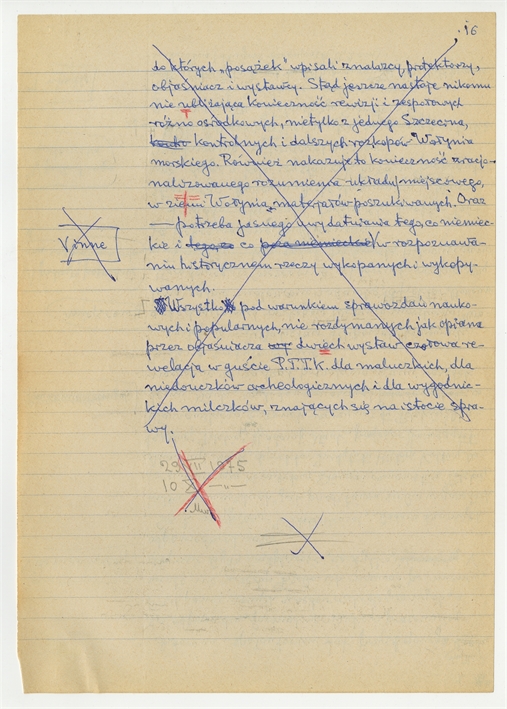 16
do których „posążek” wpisali znalazcy, protektorzy,
objaśniacz i wystawcy. Stąd jeszcze nastaje nikomu
nie ubliżająca konieczność rewizji i zespołowych
różno ośrodkowych, nie tylko z jednego Szczecina,
kontrolnych i dalszych rozkopów Wołynia
morskiego. Również nakazuje to konieczność zracjo-
nalizowanego rozumienia układu miejscowego,
w ziemi Wołynia, materjałów poszukiwanych. Oraz
— potrzeba jasnego uwydatniania tego, co niemiec-
kie i tego, co w rozpoznawa-
niu historycznem rzeczy wykopanych i wykopy-
wanych.
Vinne
Wszystko pod warunkiem sprawozdań nauko-
wych i popularnych, nie rozdymanych jak opiana
przez objaśniacza dwuch wystaw czołowa re-
welacja w guście P.T.T.K. dla maluczkich, dla
niedouczków archeologicznych i dla wygodnic-
kich milczków, znających się na istocie spra-
wy.
29 VII 1975
10 X —„—